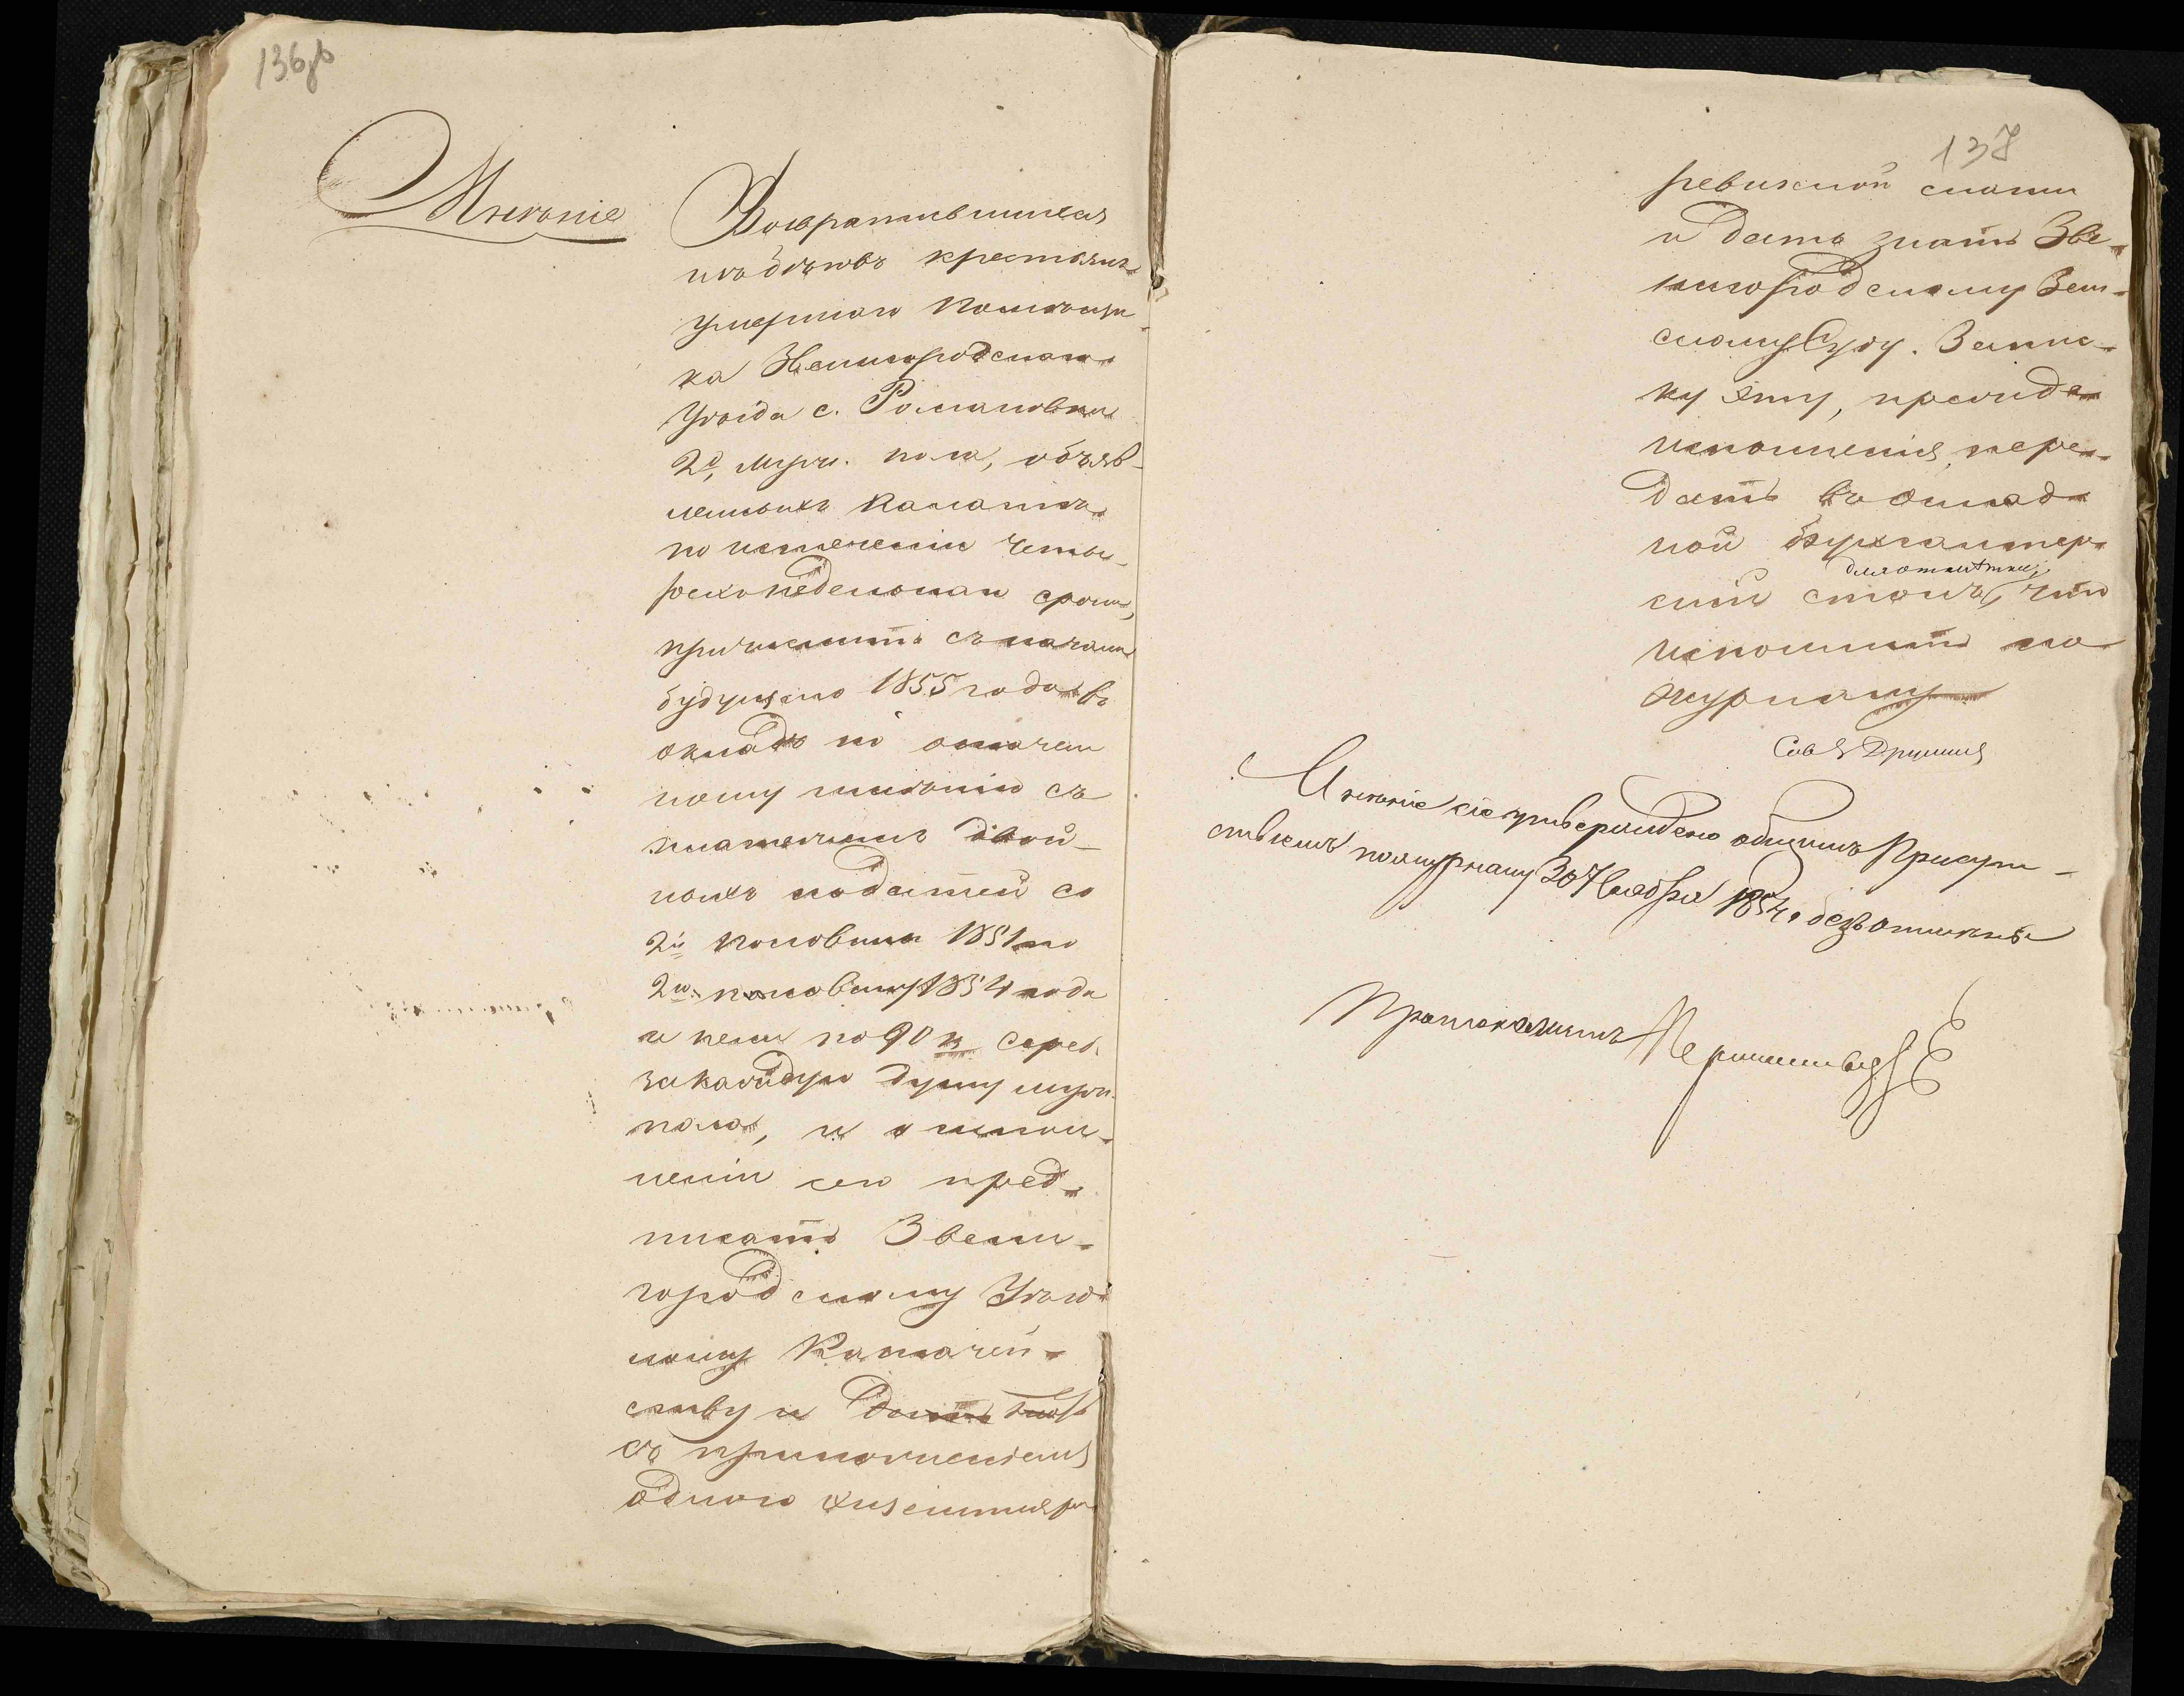 136 об
Мнѣніе
Возвратившихся
изъ бѣговъ крестьянъ
умершаго помѣщи-
ка Звенигородскаго
Уѣзда с. Романовки
2х муж. пола, объяв-
ленныхъ Палатѣ
по истеченіи четы-
рехнедѣльнаго срока,
причислить съ начала
будущаго 1855 года въ
окладъ по означен
ному имѣнію съ
платежемъ двой-
ныхъ податей со
2й половины 1851 по
2ю половину 1854 года
и пени по 90 к сереб.
за каждую душу муж.
пола, и о испол-
неніи сего пред-
писать Звени-
городскому Уѣзд
ному Казначей-
ству и дать знать
съ приложеніемъ
одного экземпляра
137
ревизской сказки
и дать знать Зве-
нигородскому Зем-
скому Суду. Запис-
ку эту, прежде
исполненія, пере-
дать въ оклад-
ной бухгалтер-
для отмѣтки,
скій столъ, что
исполнить по
журналу
Сов
Мнѣніе сіе утверждено общимъ Присут-
ствіемъ по журналу 30 Ноября 1854 г. безъ отмѣны
Протоколистъ